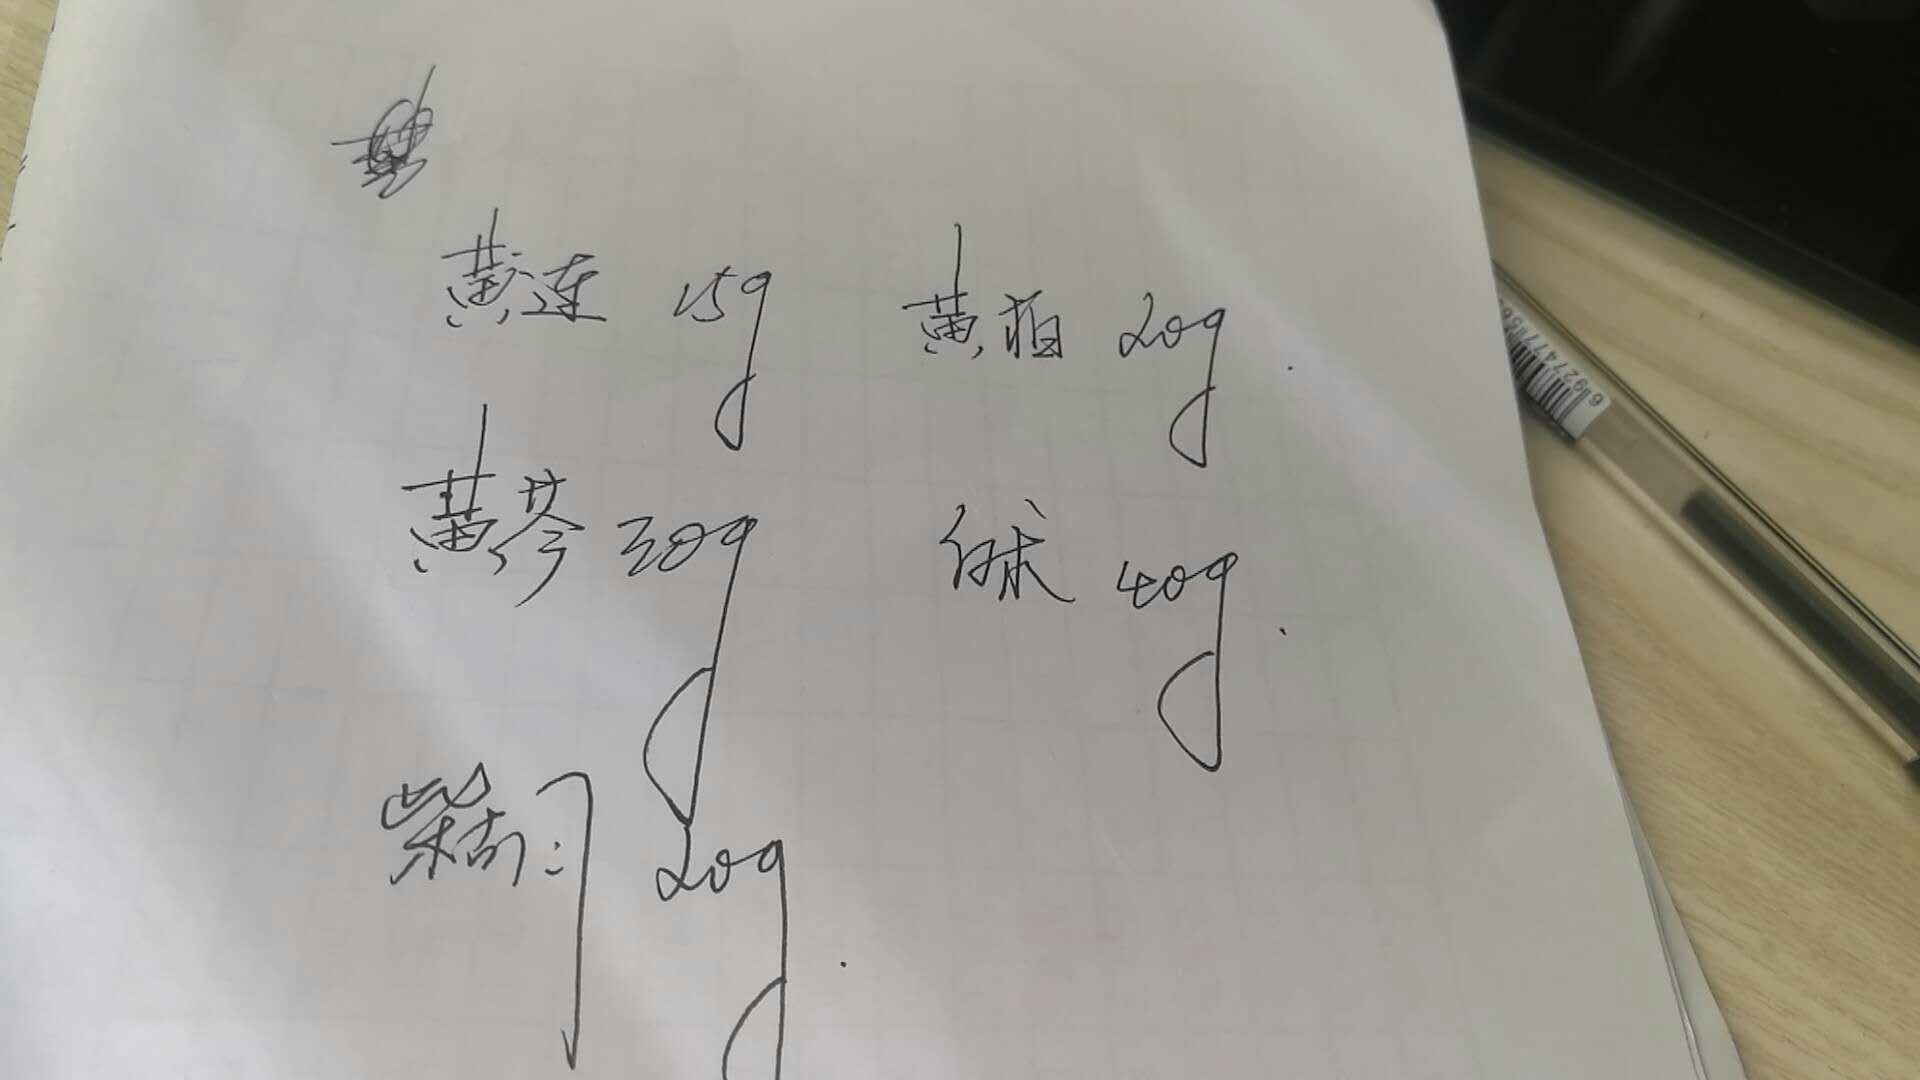 黄连 15g 黄柏 20g
黄芩 30g 白术 40g
柴胡 20g